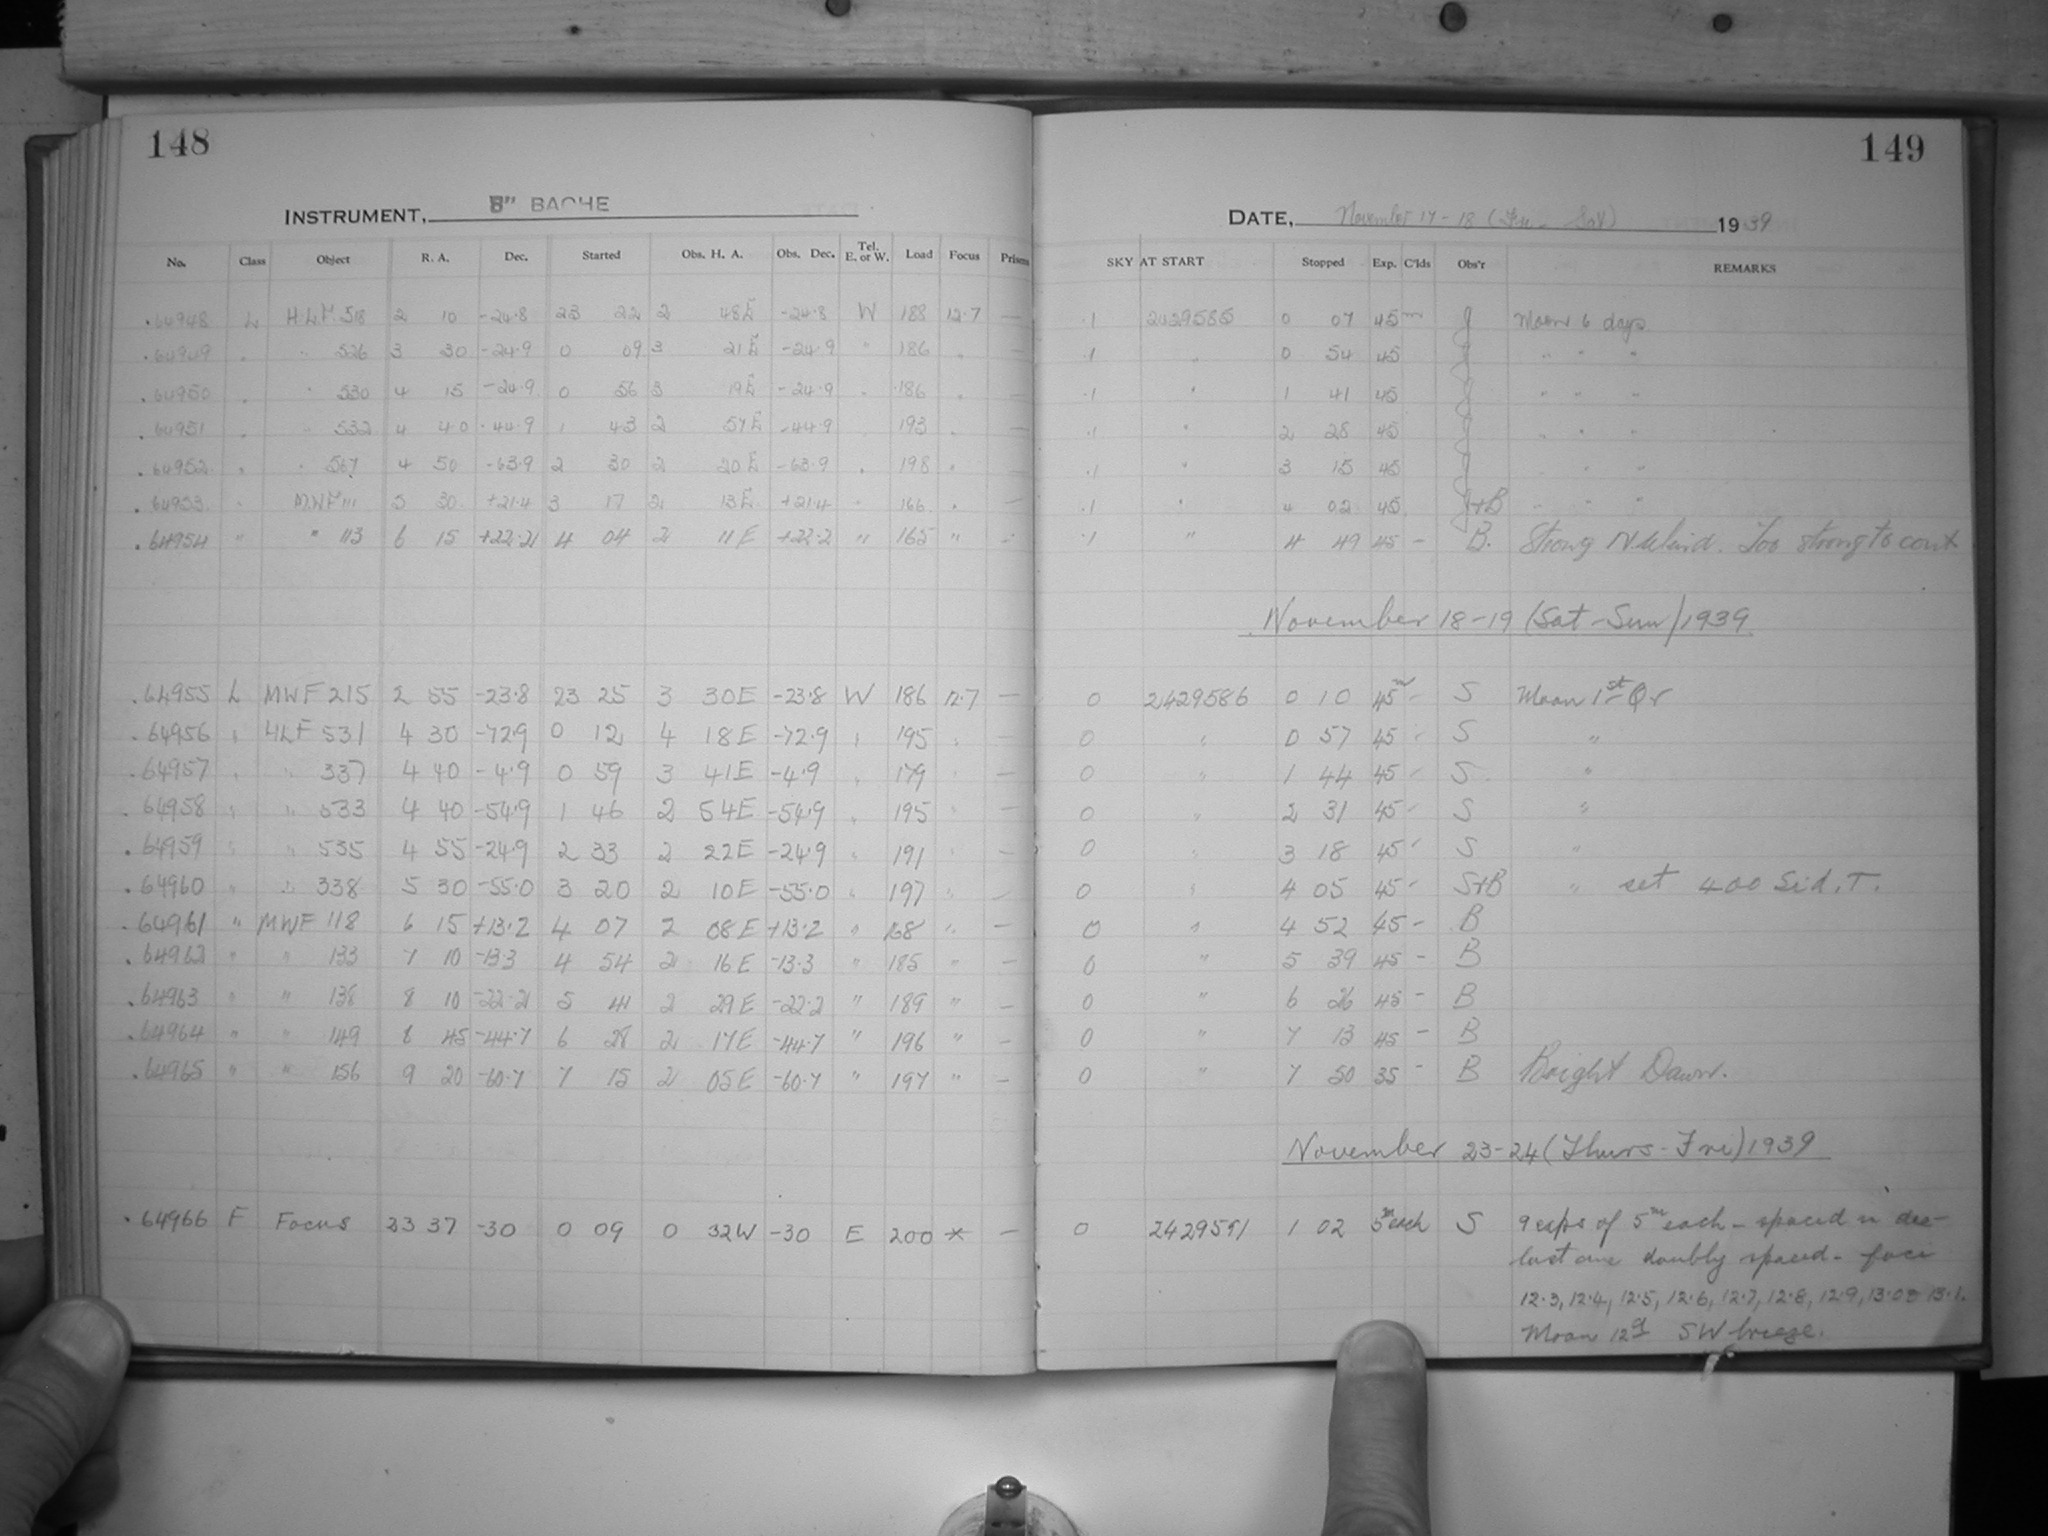 148
149
INSTRUMENT, 8" BACHE
DATE, November 17-18 (Fri - Sat) 1939
No. Class Object R. A. Dec. Started Obs. H. A. Obs. Dec. Tel. E. or W. Load Focus Prisms SKY AT START Stopped Exp. C'lds Obs'r REMARKS
.64948 L HLF 518 2 10 -24.8 23 22 2 48E -24.8 W 188 12.7 — .1 2429585 0 07 45m J Moon 6 days
.64949 " " 526 3 30 -24.9 0 09 3 21E -24.9 " 186 " — .1 " 0 54 45 J " " "
.64950 " " 530 4 15 -24.9 0 56 3 19E -24.9 " 186 " — .1 " 1 41 45 J " " "
.64951 " " 532 4 40 -44.9 1 43 2 57E -44.9 " 193 " — .1 " 2 28 45 J " " "
.64952 " " 567 4 50 -63.9 2 30 2 20E -63.9 " 198 " — .1 " 3 15 45 J " " "
.64953 " MWF 111 5 30 +21.4 3 17 2 13E +21.4 " 166 " — .1 " 4 02 45 J+B " " "
.64954 " " 113 6 15 +22.2 4 04 2 11E +22.2 " 165 " — .1 " 4 49 45 — B. Strong N. Wind. Too strong to cont
November 18-19 (Sat-Sun) 1939
.64955 L MWF 215 2 55 -23.8 23 25 3 30E -23.8 W 186 12.7 — 0 2429586 0 10 45m — S Moon 1st Qr
.64956 " HLF 531 4 30 -72.9 0 12 4 18E -72.9 " 195 " — 0 " 0 57 45 " S "
.64957 " " 337 4 40 -4.9 0 59 3 41E -4.9 " 179 " — 0 " 1 44 45 " S "
.64958 " " 533 4 40 -54.9 1 46 2 54E -54.9 " 195 " — 0 " 2 31 45 " S "
.64959 " " 535 4 55 -24.9 2 33 2 22E -24.9 " 191 " — 0 " 3 18 45 " S "
.64960 " " 338 5 30 -55.0 3 20 2 10E -55.0 " 197 " — 0 " 4 05 45 " S+B " set 400 Sid. T.
.64961 " MWF 118 6 15 +13.2 4 07 2 08E +13.2 " 168 " — 0 " 4 52 45 — B
.64962 " " 133 7 10 -13.3 4 54 2 16E -13.3 " 185 " — 0 " 5 39 45 — B
.64963 " " 138 8 10 -22.2 5 41 2 29E -22.2 " 189 " — 0 " 6 26 45 — B
.64964 " " 149 8 45 -44.7 6 28 2 17E -44.7 " 196 " — 0 " 7 13 45 — B
.64965 " " 156 9 20 -60.7 7 15 2 05E -60.7 " 197 " — 0 " 7 50 35 — B Bright Dawn.
November 23-24 (Thurs-Fri) 1939
.64966 F Focus 23 37 -30 0 09 0 32W -30 E 200 * — 0 2429591 1 02 5m each S 9 exps of 5m each - spaced in dec-
last one doubly spaced - foci
12.3, 12.4, 12.5, 12.6, 12.7, 12.8, 12.9, 13.0 13.1.
Moon 12d SW breeze.